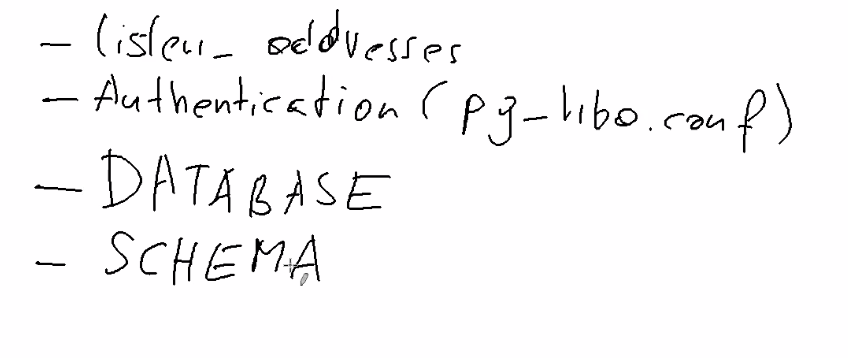 - listen_ addresses
- Authentication (pg_hba.conf)
- DATABASE
- SCHEMA